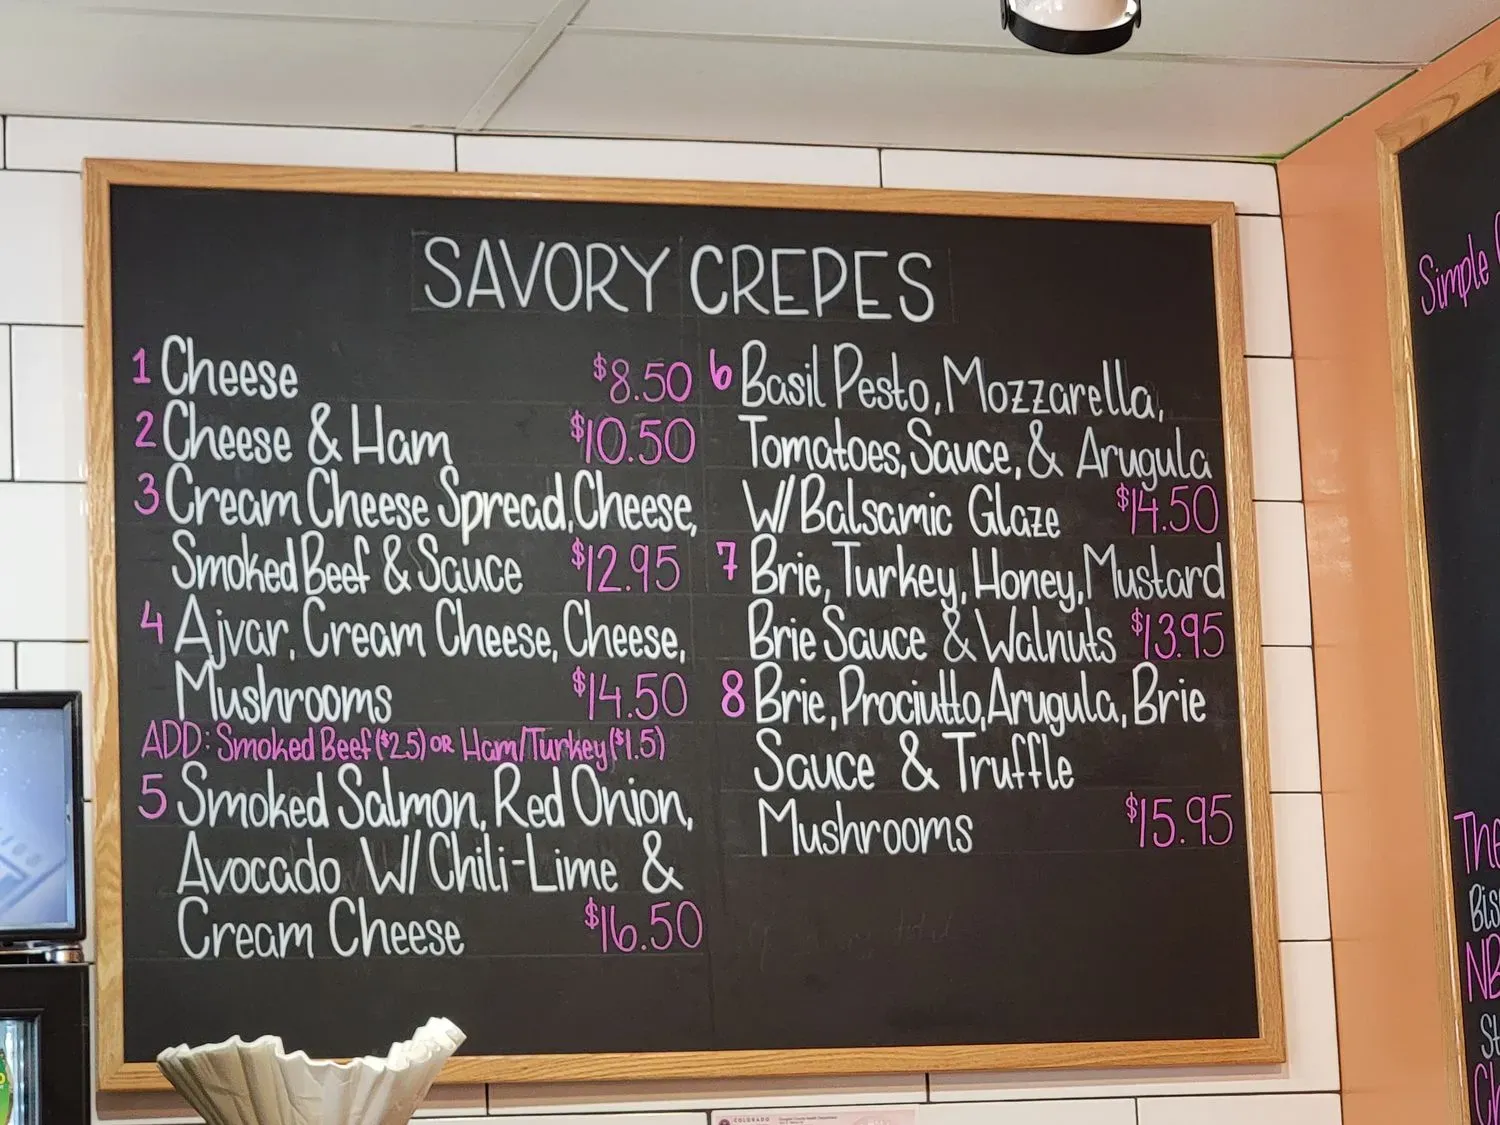 SAVORY CREPES
1 Cheese $8.50
2 Cheese & Ham $10.50
3 Cream Cheese Spread, Cheese,
Smoked Beef & Sauce $12.95
4 Ajvar, Cream Cheese, Cheese,
Mushrooms $14.50
ADD: Smoked Beef ($2.5) OR Ham/Turkey ($1.5)
5 Smoked Salmon, Red Onion,
Avocado W/ Chili-Lime &
Cream Cheese $16.50
6 Basil Pesto, Mozzarella,
Tomatoes, Sauce, & Arugula
W/ Balsamic Glaze $14.50
7 Brie, Turkey, Honey, Mustard
Brie Sauce & Walnuts $13.95
8 Brie, Prociutto, Arugula, Brie
Sauce & Truffle
Mushrooms $15.95
Simple
The
COLORADO